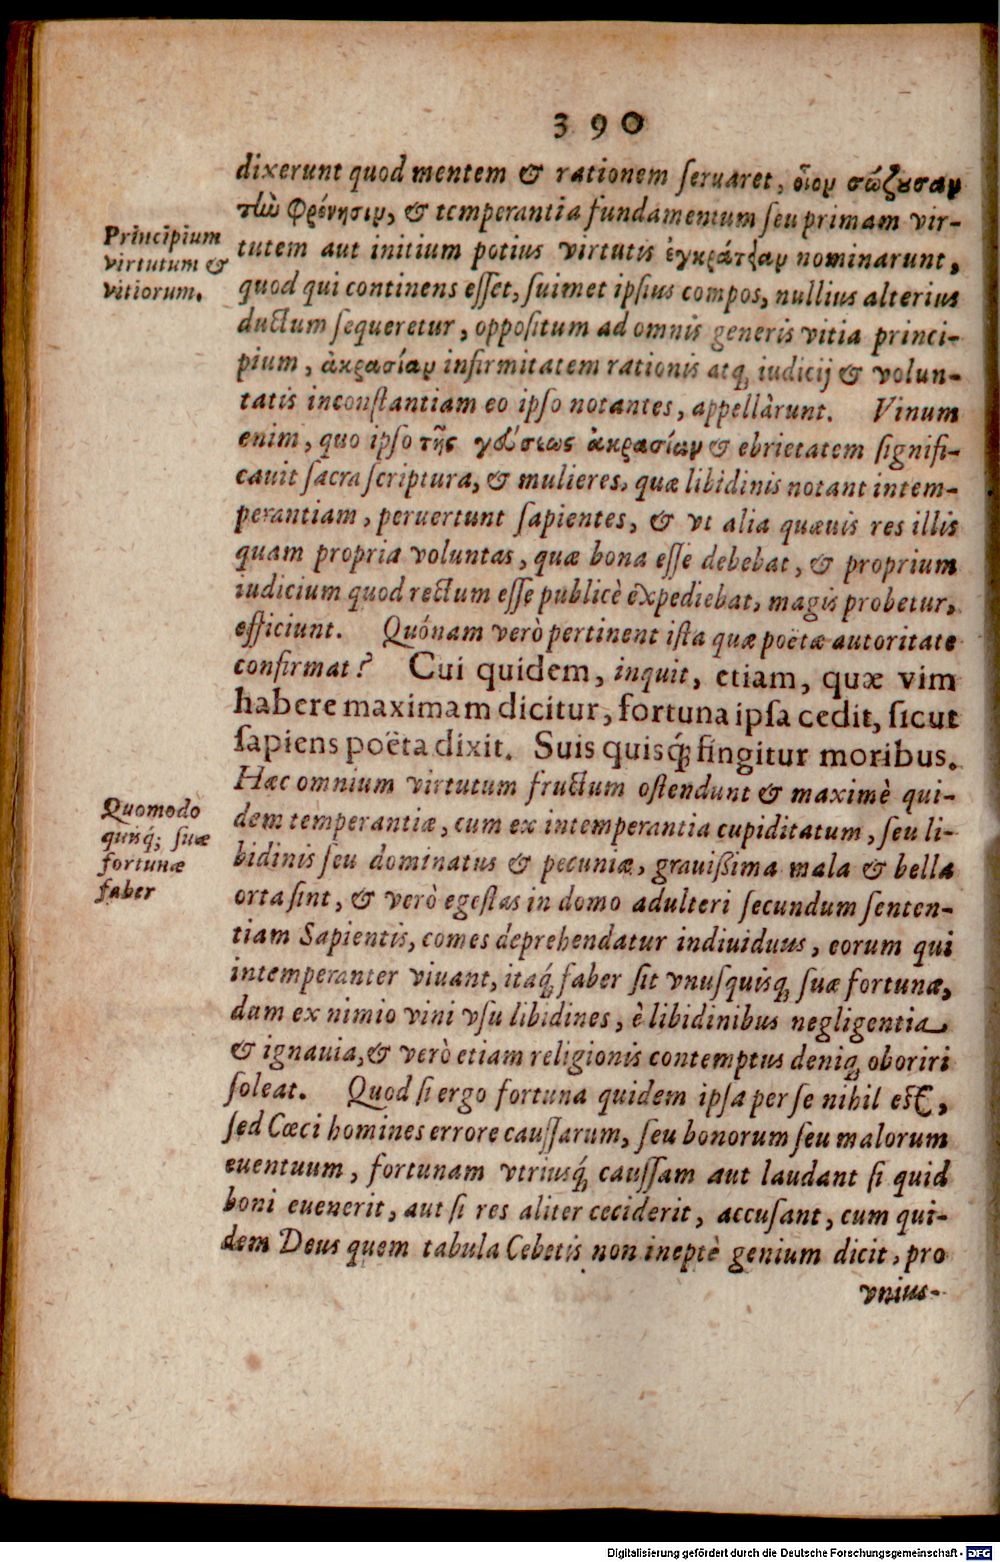 390
dixerunt quod mentem & rationem ſeruaret, οἷον σώζουσαν
τὴν φρένησιν, & temperantia fundamentum ſeu primam vir-
Principium
virtutum &
vitiorum.
tutem aut initium potius virtutis ἐγκράτειαν nominarunt,
quod qui continens eſſet, ſuimet ipſius compos, nullius alterius
ductum ſequeretur, oppoſitum ad omnis generis vitia princi-
pium, ἀκρασίαν infirmitatem rationis atq́ iudicij & volun-
tatis inconſtantiam eo ipſo notantes, appellàrunt. Vinum
enim, quo ipſo τῆς γεύσεως ἀκρασίαν & ebrietatem ſignifi-
cauit ſacra ſcriptura, & mulieres, quæ libidinis notant intem-
perantiam, peruertunt ſapientes, & vt alia quæuis res illis
quam propria voluntas, quæ bona eſſe debebat, & proprium
iudicium quod rectum eſſe publicè expediebat, magis probetur,
efficiunt. Quónam verò pertinent iſta quæ poëtæ autoritate
confirmat? Cui quidem, inquit, etiam, quæ vim
habere maximam dicitur, fortuna ipſa cedit, ſicut
ſapiens poëta dixit. Suis quisq́; fingitur moribus.
Hæc omnium virtutum fructum oſtendunt & maximè qui-
Quomodò
quisq́; ſuæ
fortunæ
faber
dem temperantiæ, cum ex intemperantia cupiditatum, ſeu li-
bidinis ſeu dominatus & pecuniæ, grauißima mala & bella
orta ſint, & verò egeſtas in domo adulteri ſecundum ſenten-
tiam Sapientis, comes deprehendatur indiuiduus, eorum qui
intemperanter viuant, itaq́; faber ſit vnuſquisq; ſuæ fortunæ,
dum ex nimio vini vſu libidines, è libidinibus negligentia,
& ignauia, & verò etiam religionis contemptus deniq; oboriri
ſoleat. Quod ſi ergo fortuna quidem ipſa per ſe nihil eſt,
ſed Cæci homines errore cauſſarum, ſeu bonorum ſeu malorum
euentuum, fortunam vtriusq́; cauſſam aut laudant ſi quid
boni euenerit, aut ſi res aliter ceciderit, accuſant, cum qui-
dem Deus quem tabula Cebetis non ineptè genium dicit, pro
vnius-
Digitalisierung gefördert durch die Deutsche Forschungsgemeinschaft - DFG